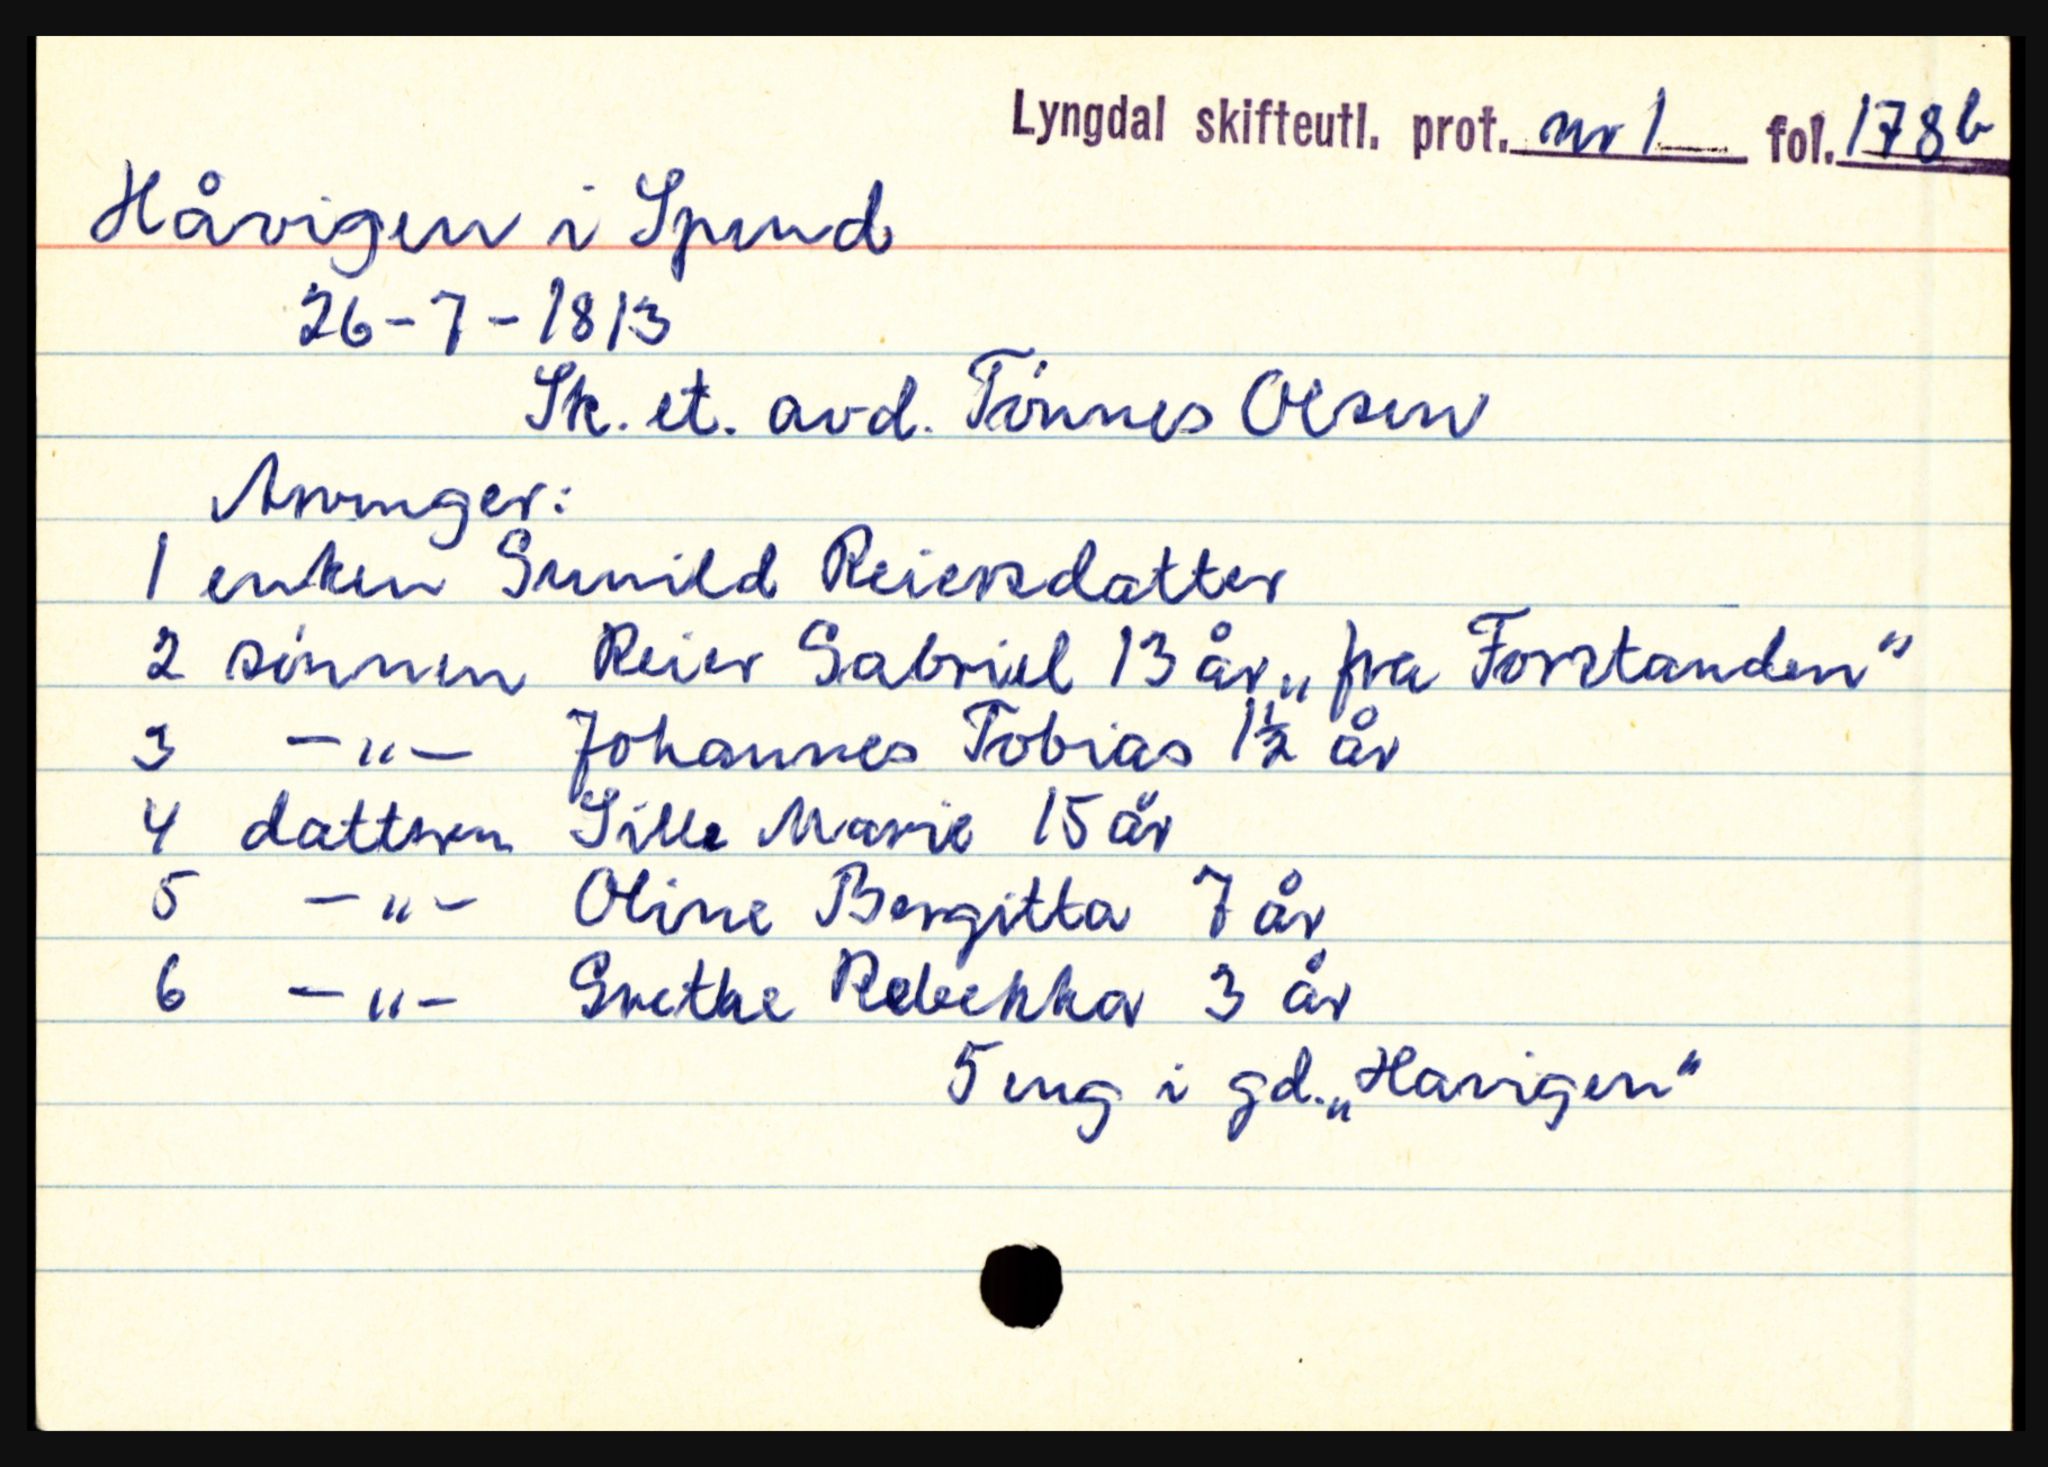 Lyngdal skifteutl. prot. nr 1 fol. 178b
Håvigen i Spind
26-7-1813
Sk. et. avd. Tönnes Olsen
Arvinger:
1 enken Gunild Reiersdatter
2 sönnen Reier Gabriel 13 år „fra Forstanden"
3 -"- Johannes Tobias 1½ år
4 dattren Sille Marie 15 år
5 -"- Oline Bergitta 7 år
6 -"- Grethe Rebekka 3 år
5 eng i gd. „Havigen"